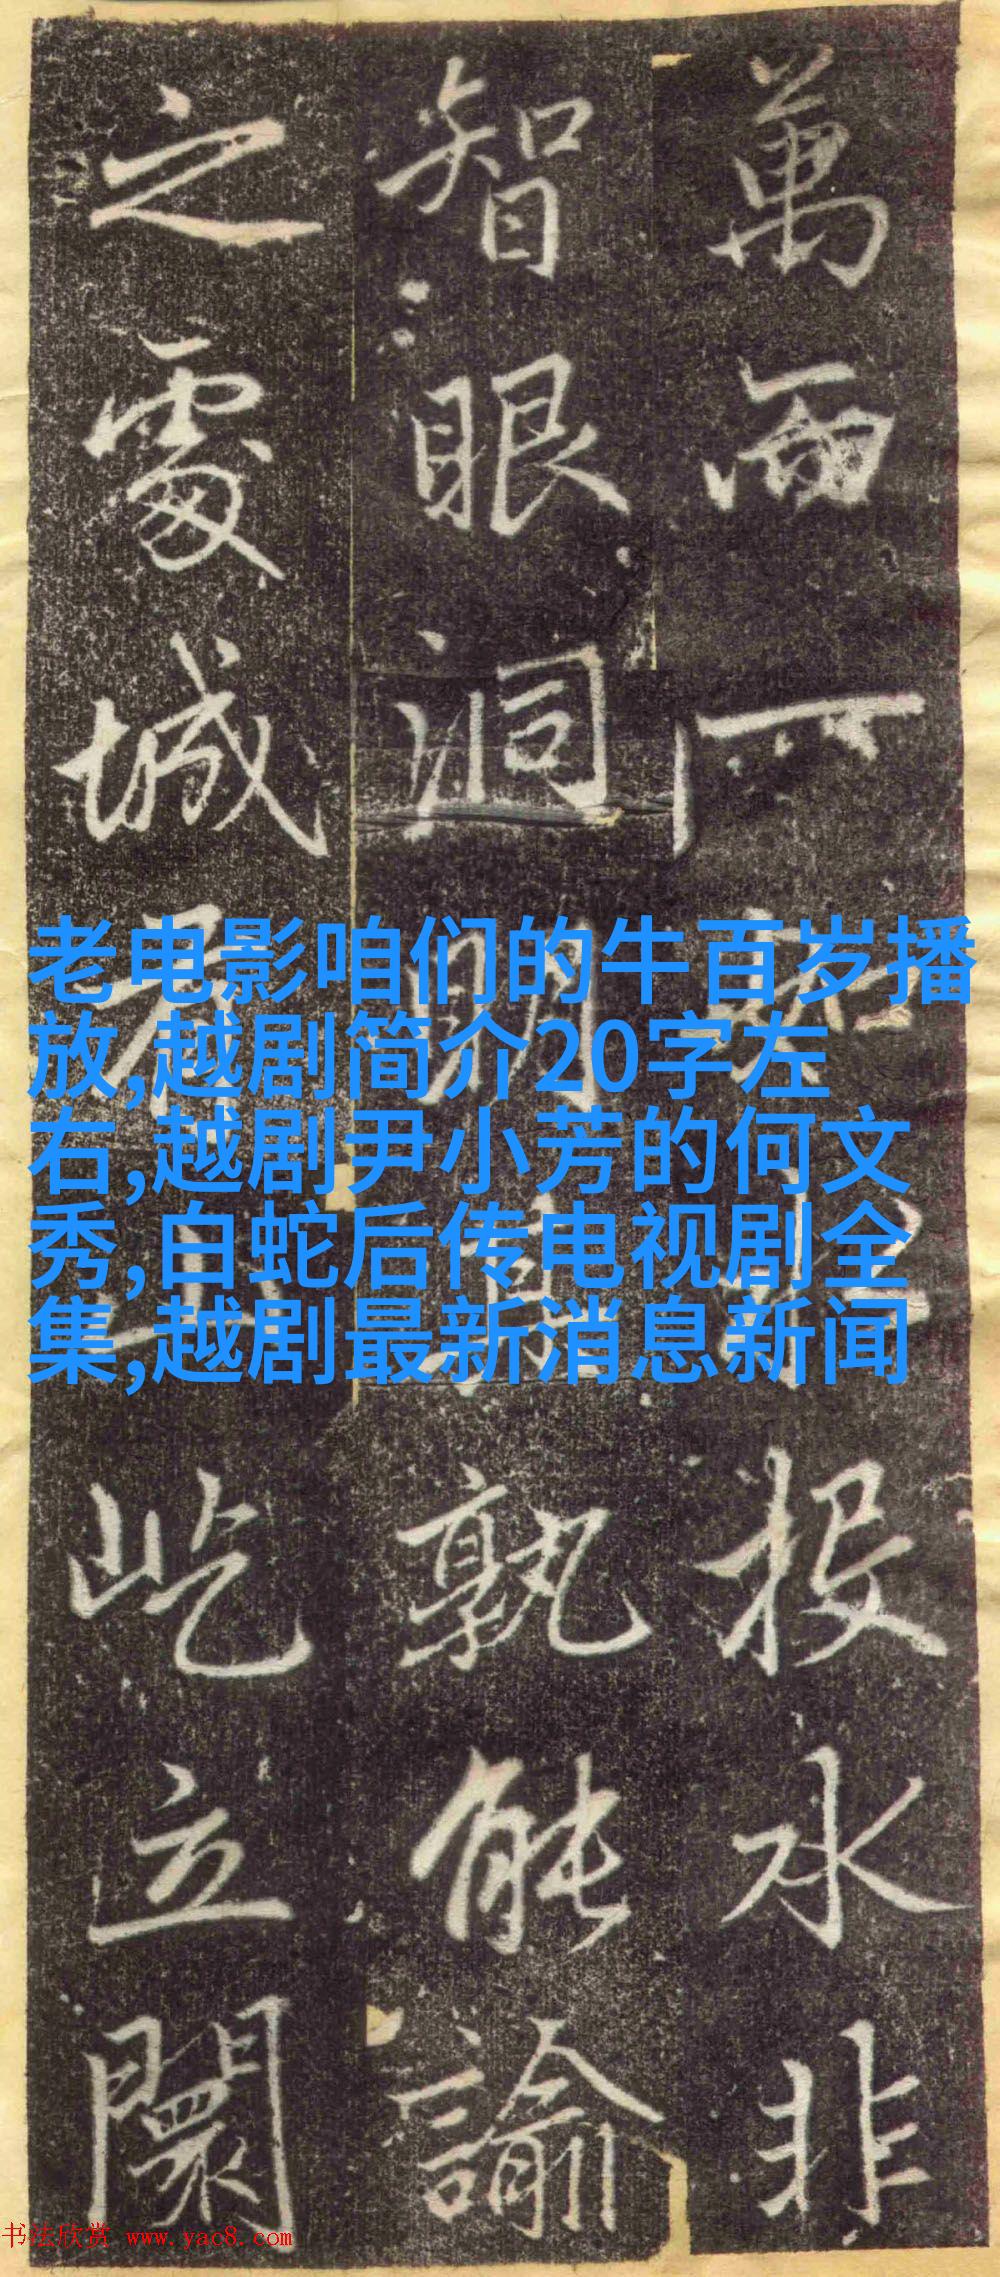 萬而一投水非
智眼洞明孰能諭
之處城屹立闤
老电影咱们的牛百岁播
放,越剧简介20字左
右,越剧尹小芳的何文
秀,白蛇后传电视剧全
集,越剧最新消息新闻
书法欣赏 www.yac8.com